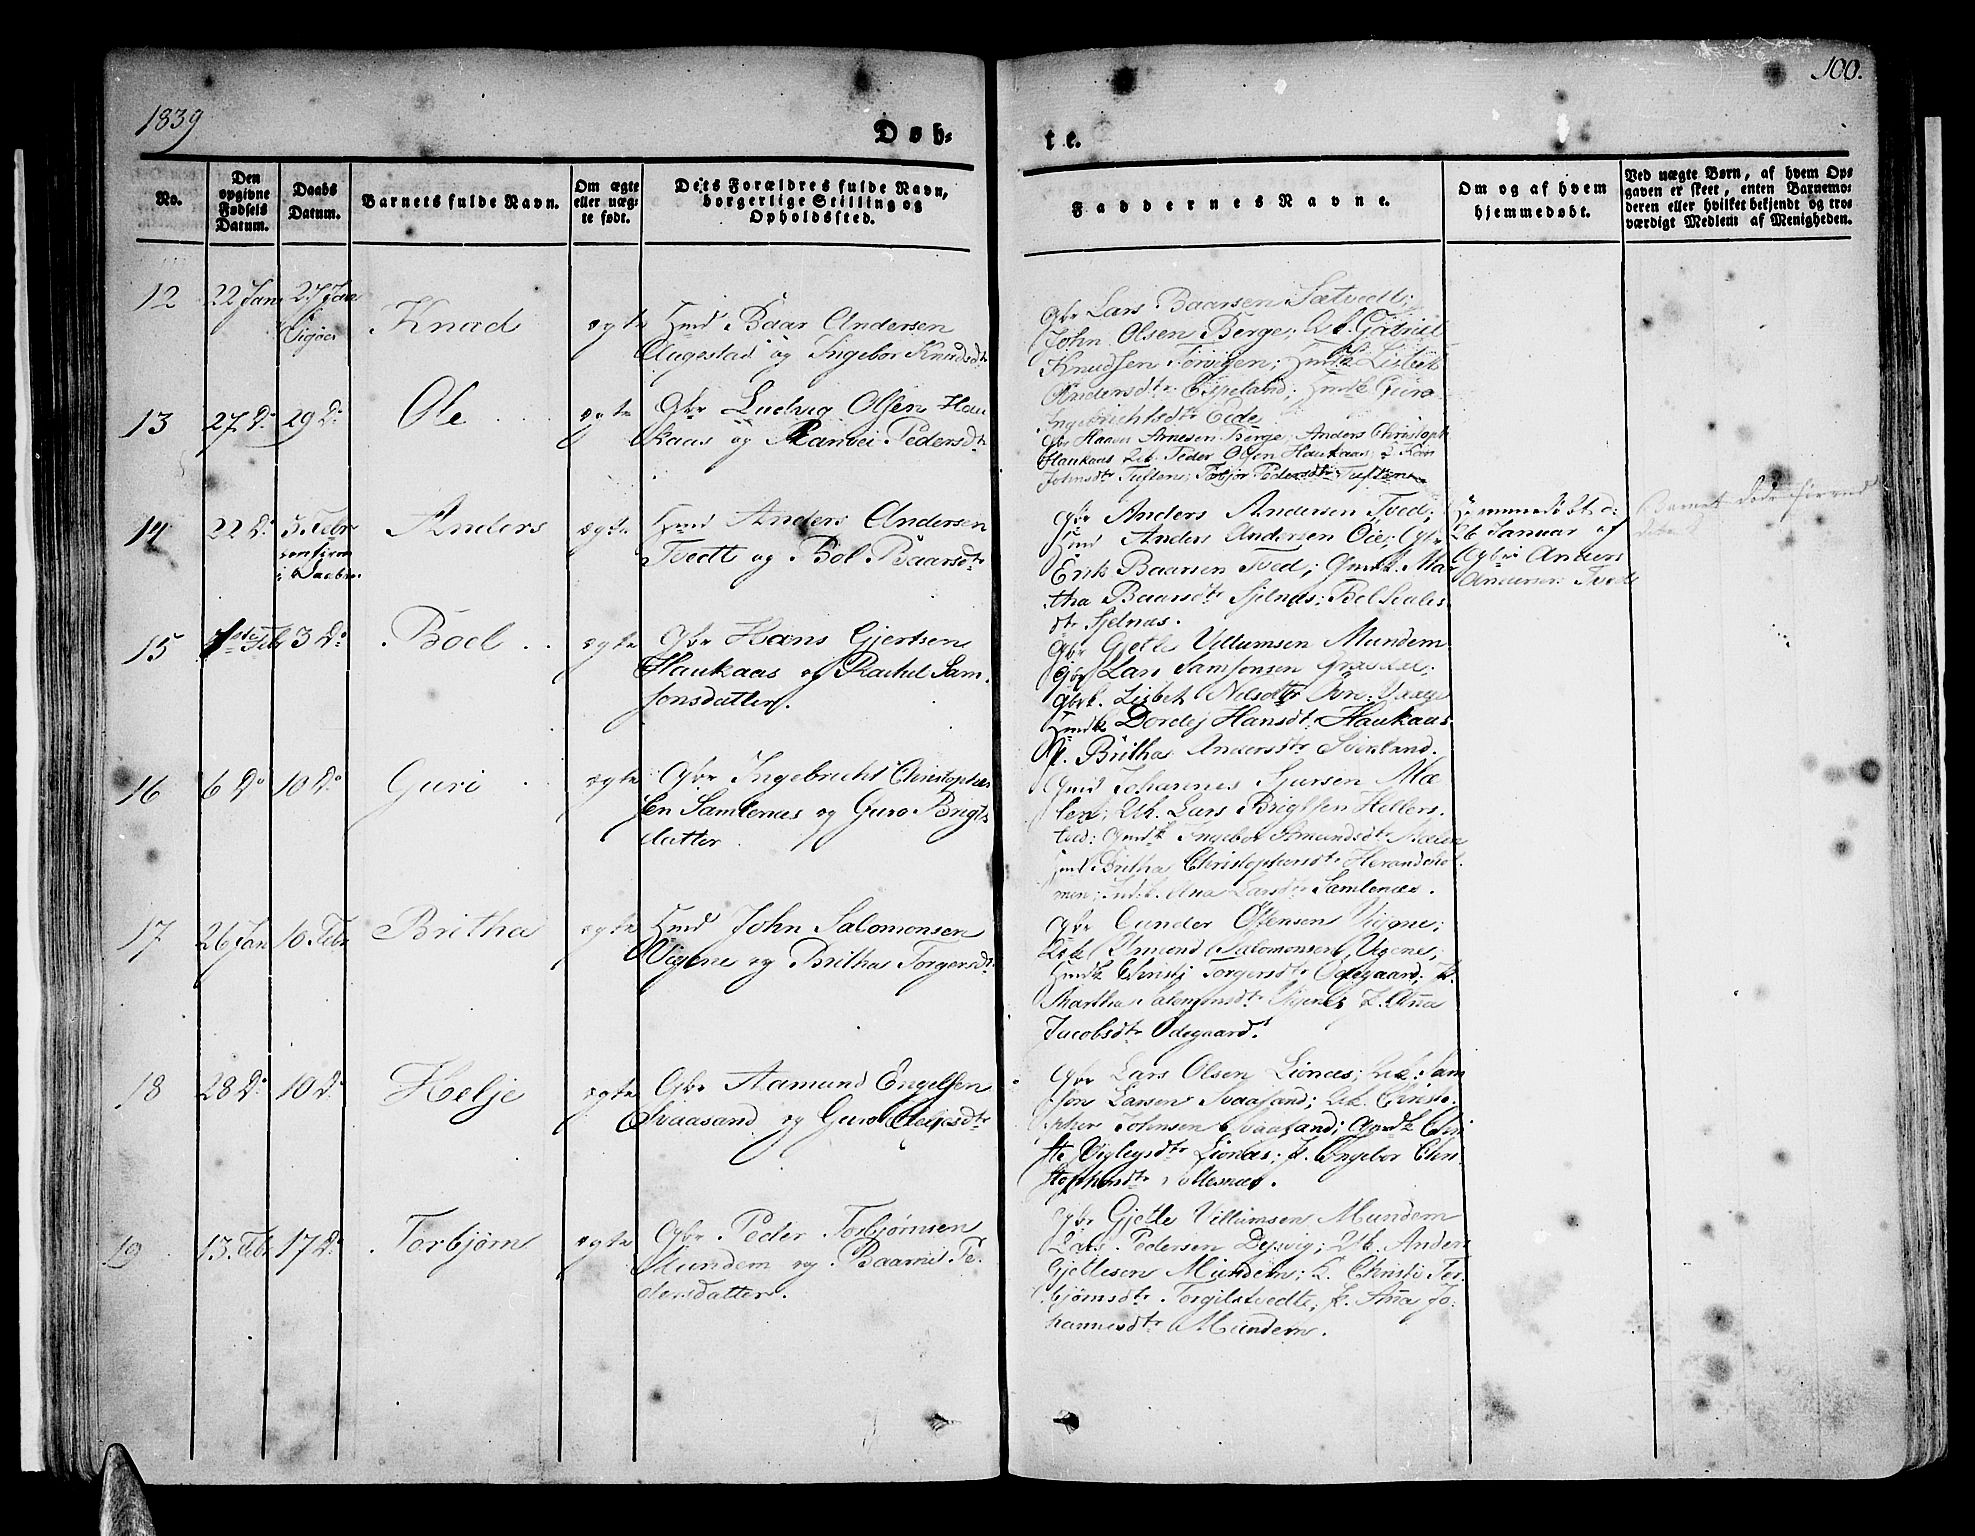 1839
100.
Døb-
te.
No.
Den opgivne Fødsels Datum.
Daabs Datum.
Barnets fulde Navn.
Om ægte eller uægte født.
Dets Forældres fulde Navn, borgerlige Stilling og Opholdssted.
Faddernes Navne.
Om og af hvem hjemmedøbt.
Ved uægte Børn, af hvem Opgaven er skeet, enten Barnemoderen eller hvilket bekjendt og troværdigt Medlem af Menigheden.
12
22 Jan
27 Jan
Knud
ægte
Hmd Baar Andersen
Augestad og Ingebor Knudsdtr
Gbr Lars Baarsen Sætvedt;
John Olsen Berge; Uk. Gabriel
Knudsen Torvigen; Hmdk Lisbet
Andersdtr Espeland; Hmdk Guro
Ingebrichtsdtr Eide
13
27 Do
29 Do
Ole
ægte
Gbr Ludvig Olsen Hau
kaas og Ranvei Pedersdtr
Gbr Haaver Arnesen Berge; Anders Christoph
Haukaas Uk. Peder Olsen Haukaas; Kari
Johnsdtr Tuften; Torbjor Pedersdtr Tuften
14
22 Do
5 Febr
Anders
ægte
Hmd Anders Andersen
Tvedt og Bol Baarsdtr
Gbr Anders Andersen Tved;
Hmd Anders Andersen Øie; Gbr
Erik Baarsen Tved; Gmdk. Mar
tha Baarsdtr Sjelnæs; Bol
dtr Sjelnæs.
Hjemmedøbt d:
26 Januar af
Gbr Anders
Andersen Tvedt
Barnet døde
15
1ste Feb
3 Do
Böel
ægte
Gbr Hans Gjertsen
Haukaas og Rachel Sam-
sonsdatter.
Gbr Gjetle Villumsen Mundem
Gbr Lars Samsonsen
Gbrk. Lisbet Nilsdtr
Hmdk Dordej Hansdt. Haukaas
P. Britha Andersdtr
16
6 Do
10 Do
Guri
ægte
Gbr Ingebricht Christophers
sen Samlenæs og Guro Brigts
datter
Gmd Johannes Sjursen Mæ
len; Uk. Lars Brigtsen Hellers
tved; Gmdk Ingebor Amundsdtr Mælen
Hmd Britha Christophersdtr Herandshol
men; Ana Larsdtr Samlenæs.
17
26 Jan
10 Febr
Britha
ægte
Hmd John Salomonsen
Vigene og Britha Torgersdt.
Gbr Gunder Vigene;
Uk Amund Salomonsen Vigene;
Hmdk Christj Torgersdtr Ødegaard; P.
Martha Salomonsdtr Vigene; P. Ana
Jacobsdtr Ödegaard.
18
28 Do
10 Do
Helje
ægte
Gbr Aamund Engelsen
Svaasand og Guro
Gbr Lars Olsen Lionæs; Uk. Sam
son Larsen Svaasand; Uk. Christo
pher Johnsen Svaasand; Gmdk Chri
ste Viglegsdtr Lionæs; P. Ingebor Chri-
stophersdtr
19
13 Febr
17 Do
Torbjørn
ægte
Gbr Peder Torbjørnsen
Mundem og Baarnil Pe-
dersdatter.
Gbr Gjetle Villumsen Mundem
Lars Pedersen Dysvig; Uk. Anders
Gjetlesen Mundem; P. Christi Tor
bjørnsdtr Torgilstvedte; P. Ana Jo-
hannesdtr Mundem.